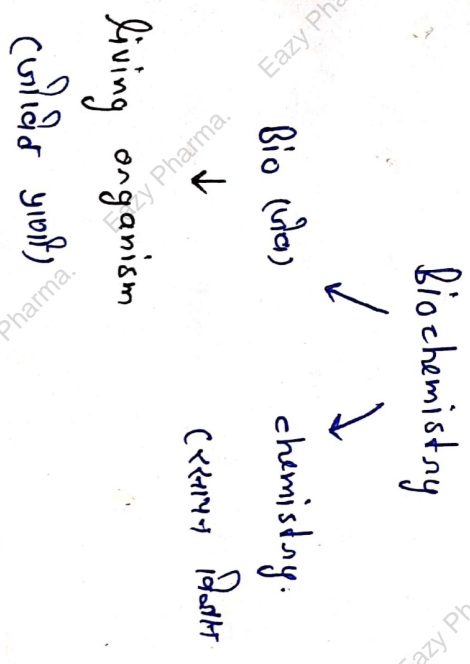 Biochemistry
Bio (जीव)
chemistry.
(रसायन विज्ञान
↓
living organism
(जीवित प्राणी)
Eazy Pharma.
Eazy Pha
Pharma.
Eazy Ph